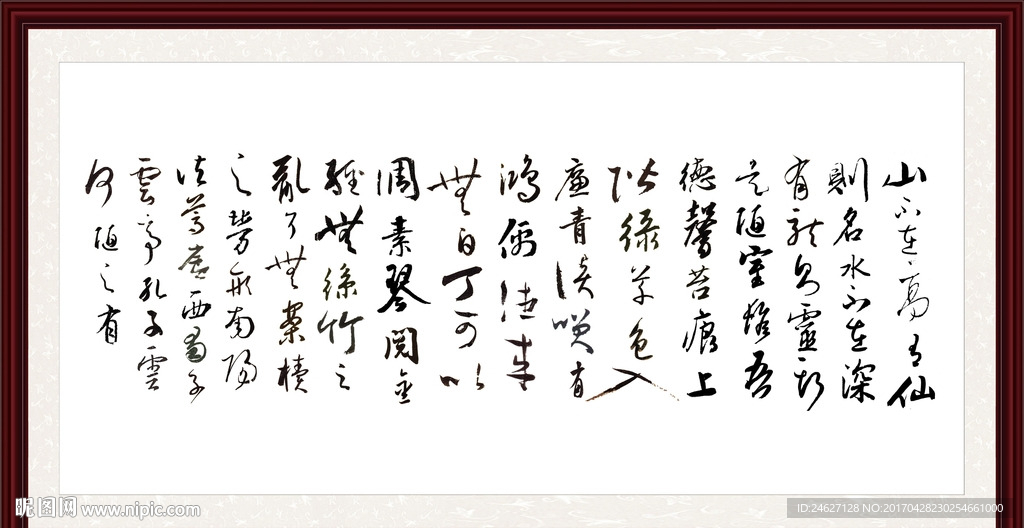 山不在高有仙
則名水不在深
有龍則靈斯
是陋室惟吾
德馨苔痕上
階綠草色入
廉青談笑有
鴻儒往來
無白丁可以
調素琴閱金
經無絲竹之
亂耳無案牘
之勞形南陽
諸葛廬西蜀子
雲亭孔子雲
何陋之有
昵图网 www.nipic.com
ID:24627128 NO:20170428230254661000